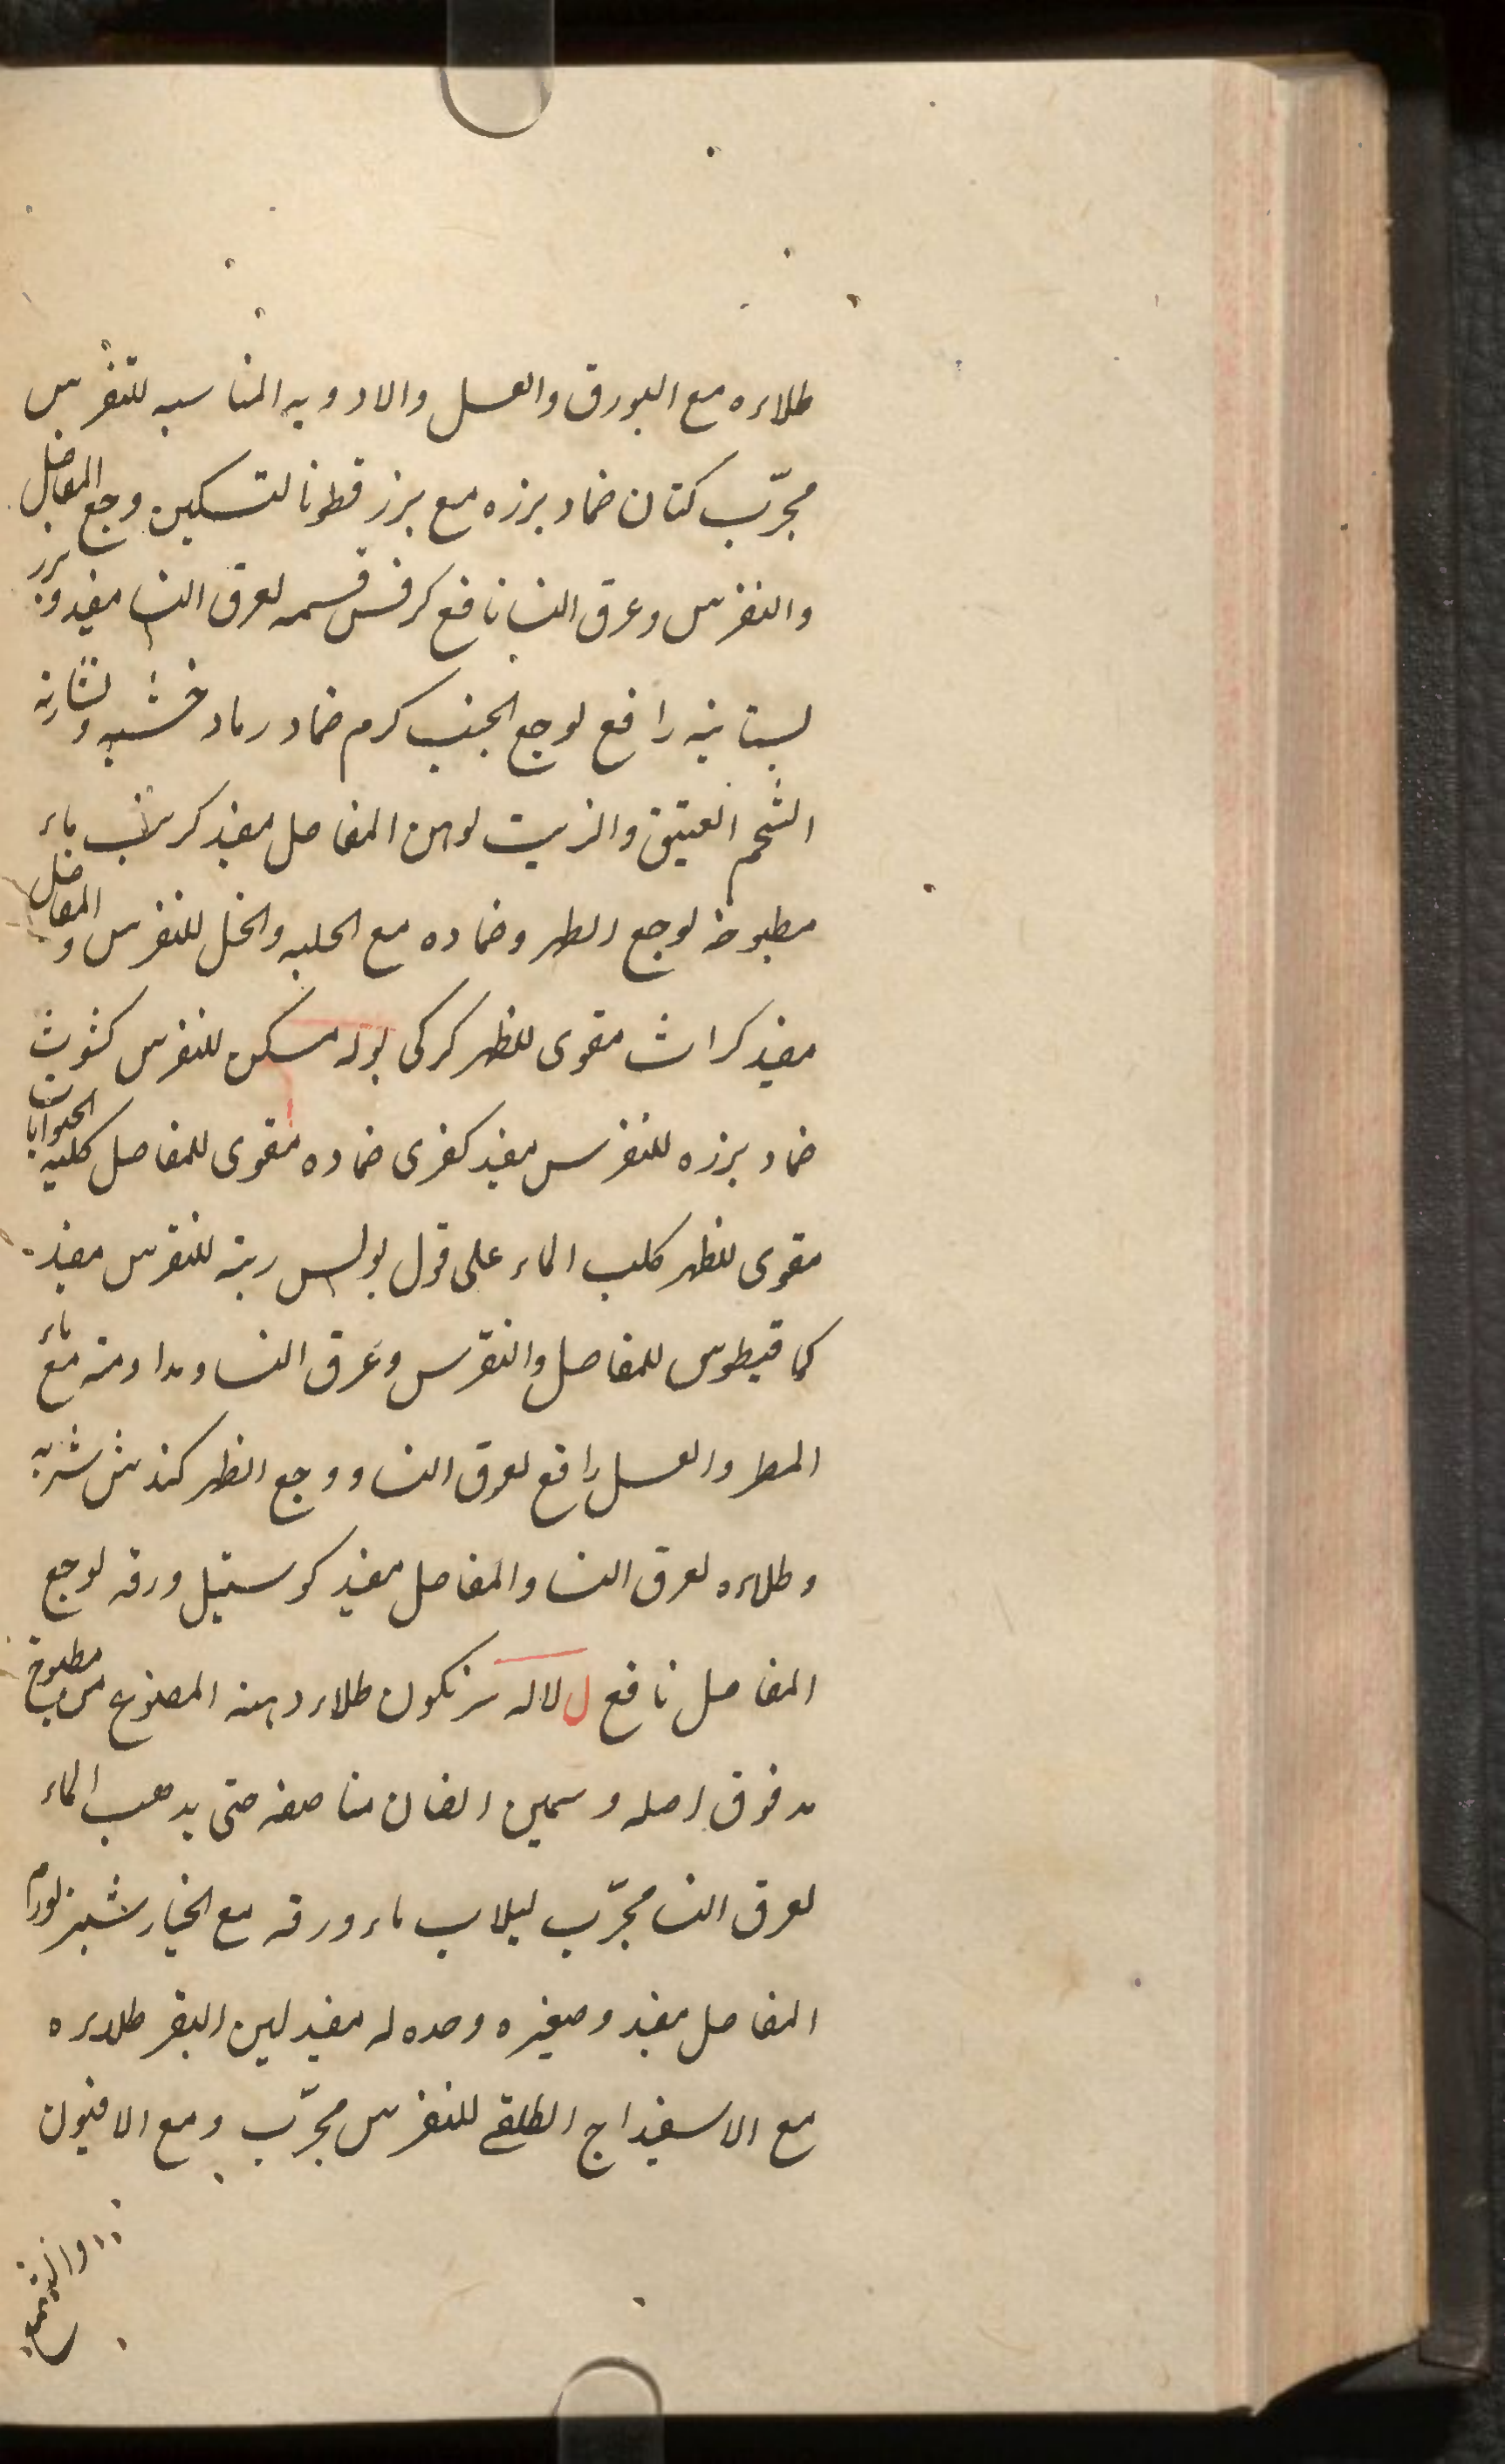 طلاءه مع البورق والعسل والادويه المناسبه للنقرس
مجرّب كتان ضماد بزره مع بزر قطونا لتسكين وجع المفاصل
والنقرس وعرق النسا نافع كرفس قسمه لعرق النسا مفيد وبزر
بستانيه رافع لوجع الجنب كرم ضماد رماد خشبه ونشارته
الشحم العتيق والزيت لوهن المفاصل مفيد كرنب ماء
مطبوخه لوجع الظهر وضماده مع الحلبه والخل للنقرس والمفاصل
مفيد كراث مقوى للظهر كركى بوله مسكن للنقرس كشوث
ضماد بزره للنقرس مفيد كفرى ضماده مقوى للمفاصل كليه الحيوانات
مقوى للظهر كلب الماء على قول بولس ريته للنقرس مفيد
كمافيطوس للمفاصل والنقرس وعرق النسا ومداومته مع ماء
المطر والعسل رافع لعرق النسا ووجع الظهر كندش شربه
وطلاءه لعرق النسا والمفاصل مفيد كوسنيل ورقه لوجع
المفاصل نافع ل لاله سرنكون طلاء دهنه المصنوع من مطبوخ
مدقوق اصله وسمين الضان مناصفه حتى يذهب الماء
لعرق النسا مجرّب لبلاب ماء ورقه مع الخيارشنبر لورم
المفاصل مفيد وصغيره وحده له مفيد لبن البقر طلاءه
مع الاسفيداج الطلقى للنقرس مجرّب ومع الافيون